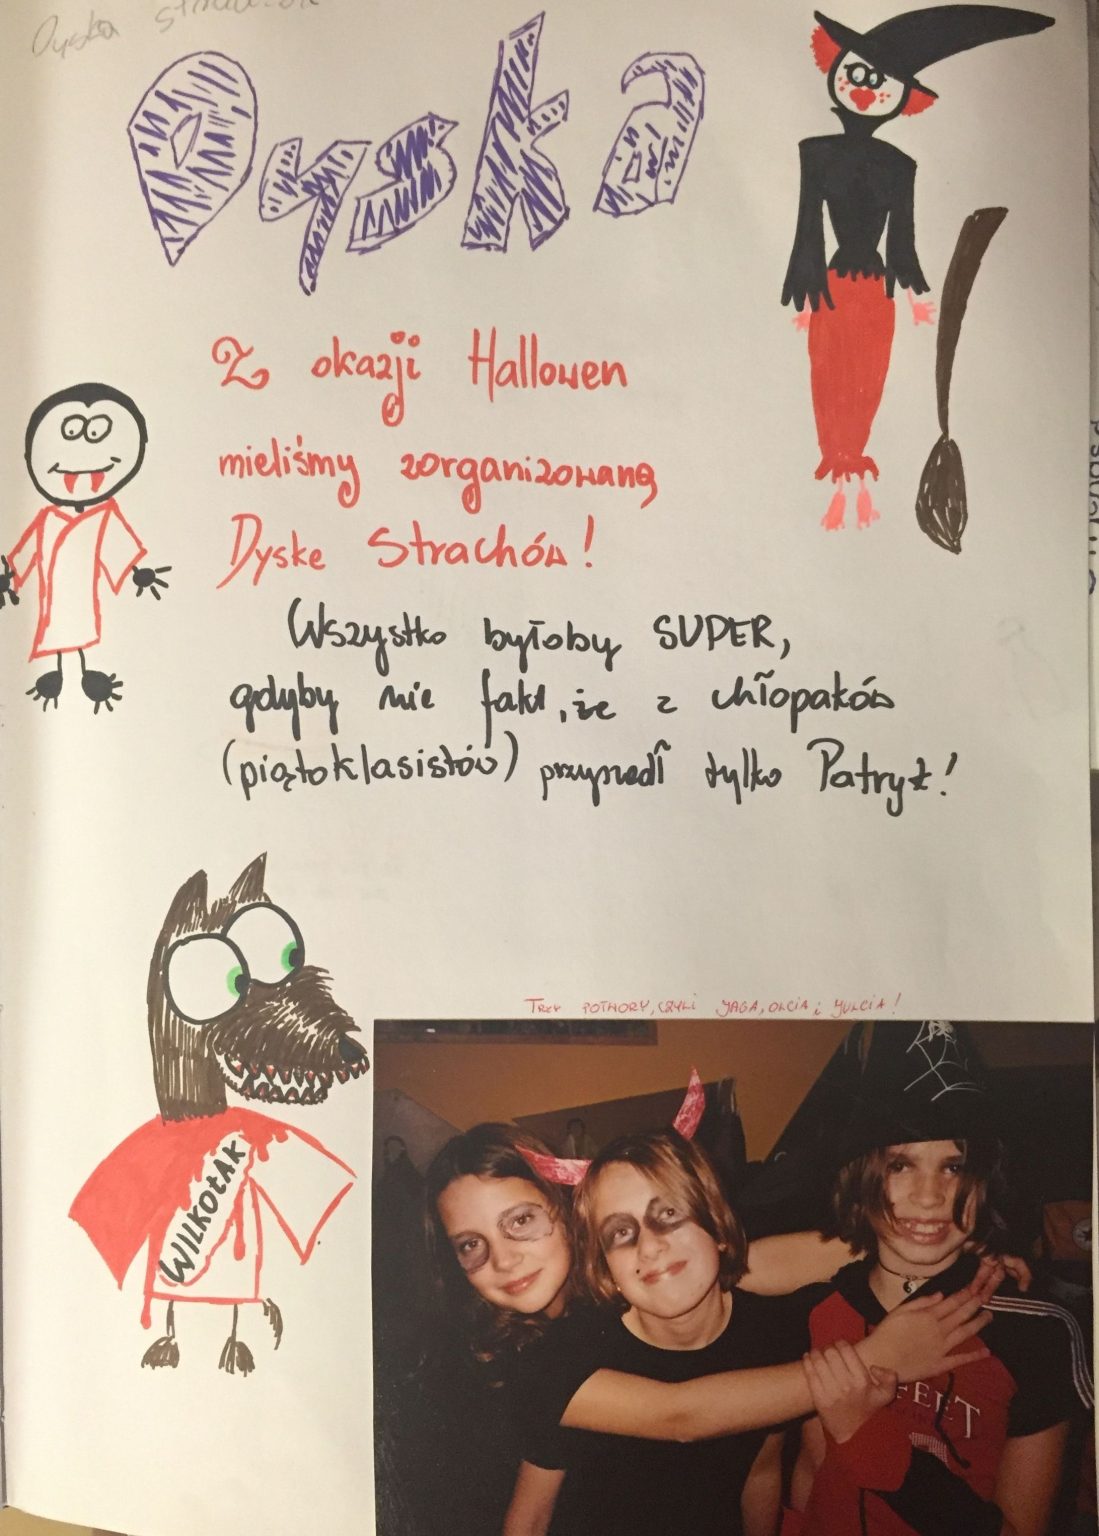 Dyska
Dyska
Z okazji Hallowen
mieliśmy zorganizowaną
Dyske Strachów!
Wszystko byłoby SUPER,
gdyby nie fakt, że z chłopaków
(piątoklasistów) przyszedł tylko Patryk!
TRZY POTWORY, CZYLI JAGA, OLCIA i JULCIA!
WILKOŁAK
FEET